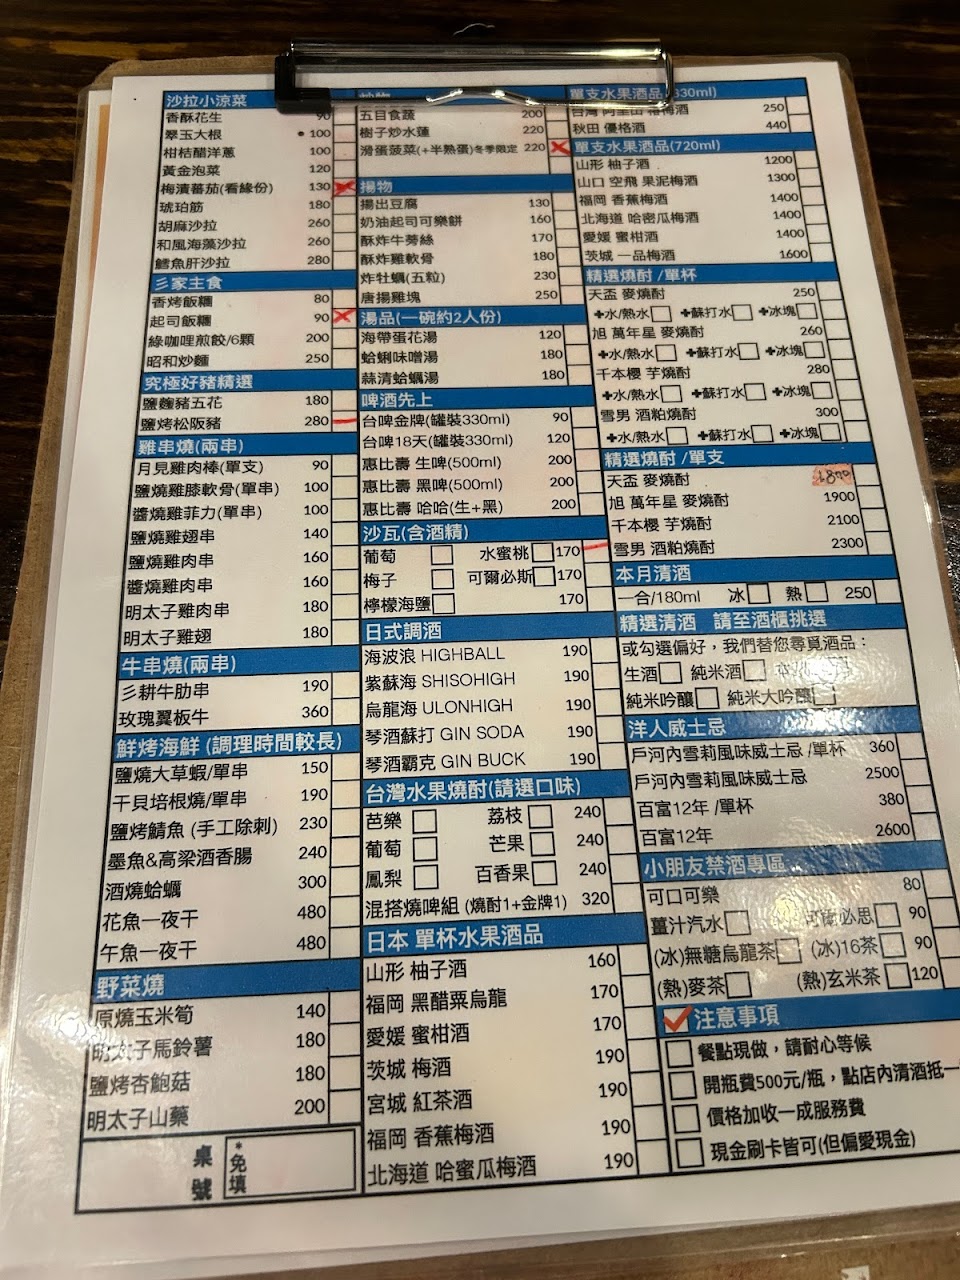 沙拉小涼菜
香酥花生 90
翠玉大根 100
柑桔醋洋蔥 100
黃金泡菜 120
梅漬蕃茄(看緣份) 130
琥珀筋 180
胡麻沙拉 260
和風海藻沙拉 260
鱈魚肝沙拉 280
彡家主食
香烤飯糰 80
起司飯糰 90
綠咖哩煎餃/6顆 200
昭和炒麵 250
究極好豬精選
鹽麴豬五花 180
鹽烤松阪豬 280
雞串燒(兩串)
月見雞肉棒(單支) 90
鹽燒雞膝軟骨(單串) 100
醬燒雞菲力(單串) 100
鹽燒雞翅串 140
鹽燒雞肉串 160
醬燒雞肉串 160
明太子雞肉串 180
明太子雞翅 180
牛串燒(兩串)
彡耕牛肋串 190
玫瑰翼板牛 360
鮮烤海鮮 (調理時間較長)
鹽燒大草蝦/單串 150
干貝培根燒/單串 190
鹽烤鯖魚 (手工除刺) 230
墨魚&高梁酒香腸 240
酒燒蛤蠣 300
花魚一夜干 480
午魚一夜干 480
野菜燒
原燒玉米筍 140
明太子馬鈴薯 180
鹽烤杏鮑菇 180
明太子山藥 200
桌號
*免填
五目食蔬 200
樹子炒水蓮 220
滑蛋菠菜(+半熟蛋)冬季限定 220
揚物
揚出豆腐 130
奶油起司可樂餅 160
酥炸牛蒡絲 170
酥炸雞軟骨 180
炸牡蠣(五粒) 230
唐揚雞塊 250
湯品(一碗約2人份)
海帶蛋花湯 120
蛤蜊味噌湯 180
蒜清蛤蠣湯 180
啤酒先上
台啤金牌(罐裝330ml) 90
台啤18天(罐裝330ml) 120
惠比壽 生啤(500ml) 200
惠比壽 黑啤(500ml) 200
惠比壽 哈哈(生+黑) 200
沙瓦(含酒精)
葡萄 水蜜桃 170
梅子 可爾必斯 170
檸檬海鹽 170
日式調酒
海波浪 HIGHBALL 190
紫蘇海 SHISOHIGH 190
烏龍海 ULONHIGH 190
琴酒蘇打 GIN SODA 190
琴酒霸克 GIN BUCK 190
台灣水果燒酎(請選口味)
芭樂 荔枝 240
葡萄 芒果 240
鳳梨 百香果 240
混搭燒啤組 (燒酎1+金牌1) 320
日本 單杯水果酒品
山形 柚子酒 160
福岡 黑醋粟烏龍 170
愛媛 蜜柑酒 170
茨城 梅酒 190
宮城 紅茶酒 190
福岡 香蕉梅酒 190
北海道 哈蜜瓜梅酒 190
單支水果酒品(330ml)
台灣 阿里山 梅酒 250
秋田 優格酒 440
單支水果酒品(720ml)
山形 柚子酒 1200
山口 空飛 果泥梅酒 1300
福岡 香蕉梅酒 1400
北海道 哈密瓜梅酒 1400
愛媛 蜜柑酒 1400
茨城 一品梅酒 1600
精選燒酎 /單杯
天盃 麥燒酎 250
+水/熱水 +蘇打水 +冰塊
旭 萬年星 麥燒酎 260
+水/熱水 +蘇打水 +冰塊
千本櫻 芋燒酎 280
+水/熱水 +蘇打水 +冰塊
雪男 酒粕燒酎 300
+水/熱水 +蘇打水 +冰塊
精選燒酎 /單支
天盃 麥燒酎
旭 萬年星 麥燒酎 1900
千本櫻 芋燒酎 2100
雪男 酒粕燒酎 2300
本月清酒
一合/180ml 冰 熱 250
精選清酒 請至酒櫃挑選
或勾選偏好，我們替您尋覓酒品：
生酒 純米酒
純米吟釀 純米大吟釀
洋人威士忌
戶河內雪莉風味威士忌 /單杯 360
戶河內雪莉風味威士忌 2500
百富12年 /單杯 380
百富12年 2600
小朋友禁酒專區
可口可樂 80
薑汁汽水 可爾必思 90
(冰)無糖烏龍茶 (冰)16茶 90
(熱)麥茶 (熱)玄米茶 120
注意事項
餐點現做，請耐心等候
開瓶費500元/瓶，點店內清酒抵一
價格加收一成服務費
現金刷卡皆可(但偏愛現金)